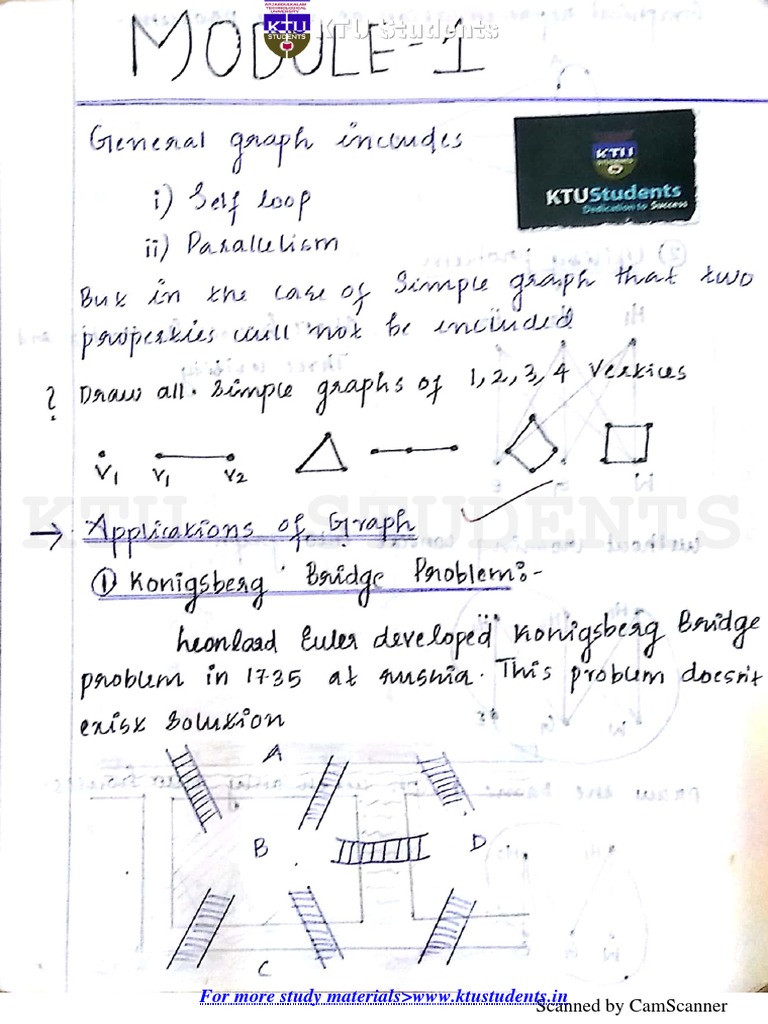 APJ ABDUL KALAM
TECHNOLOGICAL
UNIVERSITY
KTU
STUDENTS
KTU Students
MODULE-1
General graph includes
i) Self loop
ii) Parallelism
KTU
KTUStudents
Dedication to Success
But in the case of Simple graph that two
properties will not be included
? Draw all. Simple graphs of 1, 2, 3, 4 Vertices
V1 V1 V2
KTU STUDENTS
→ Applications of Graph
① Konigsberg Bridge Problem:-
Leonlard Euler developed Konigsberg Bridge
problem in 1735 at Rushia. This problem doesn't
exist Solution
A
B D
C
For more study materials>www.ktustudents.in
Scanned by CamScanner